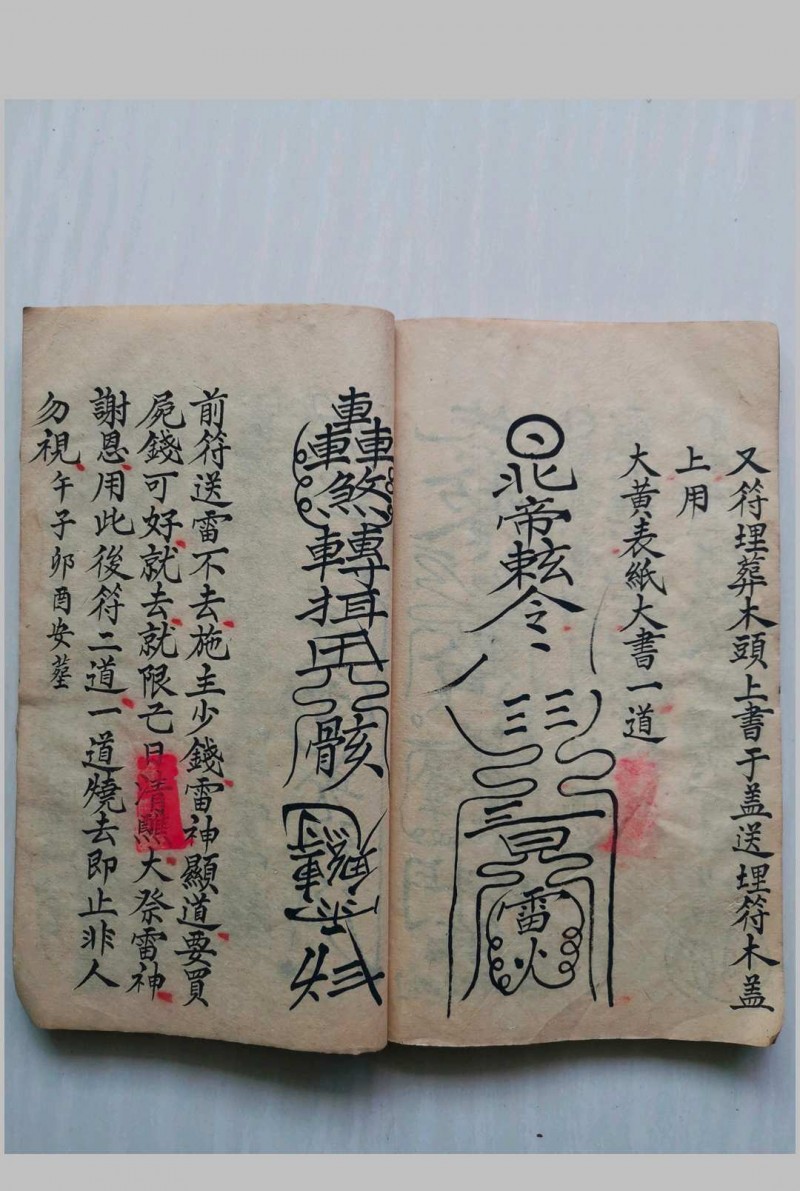 又符埋葬木頭上書于盖送埋符木盖
上用
大黄表紙大書一道
北帝敕令
三三
三見
雷火
轟
煞
轉
骸
前符送雷不去施主少錢雷神顯道要買
屍錢可好就去就限亡日清醮大祭雷神
謝恩用此後符二道一道燒去即止非人
勿視午子卯酉安塟